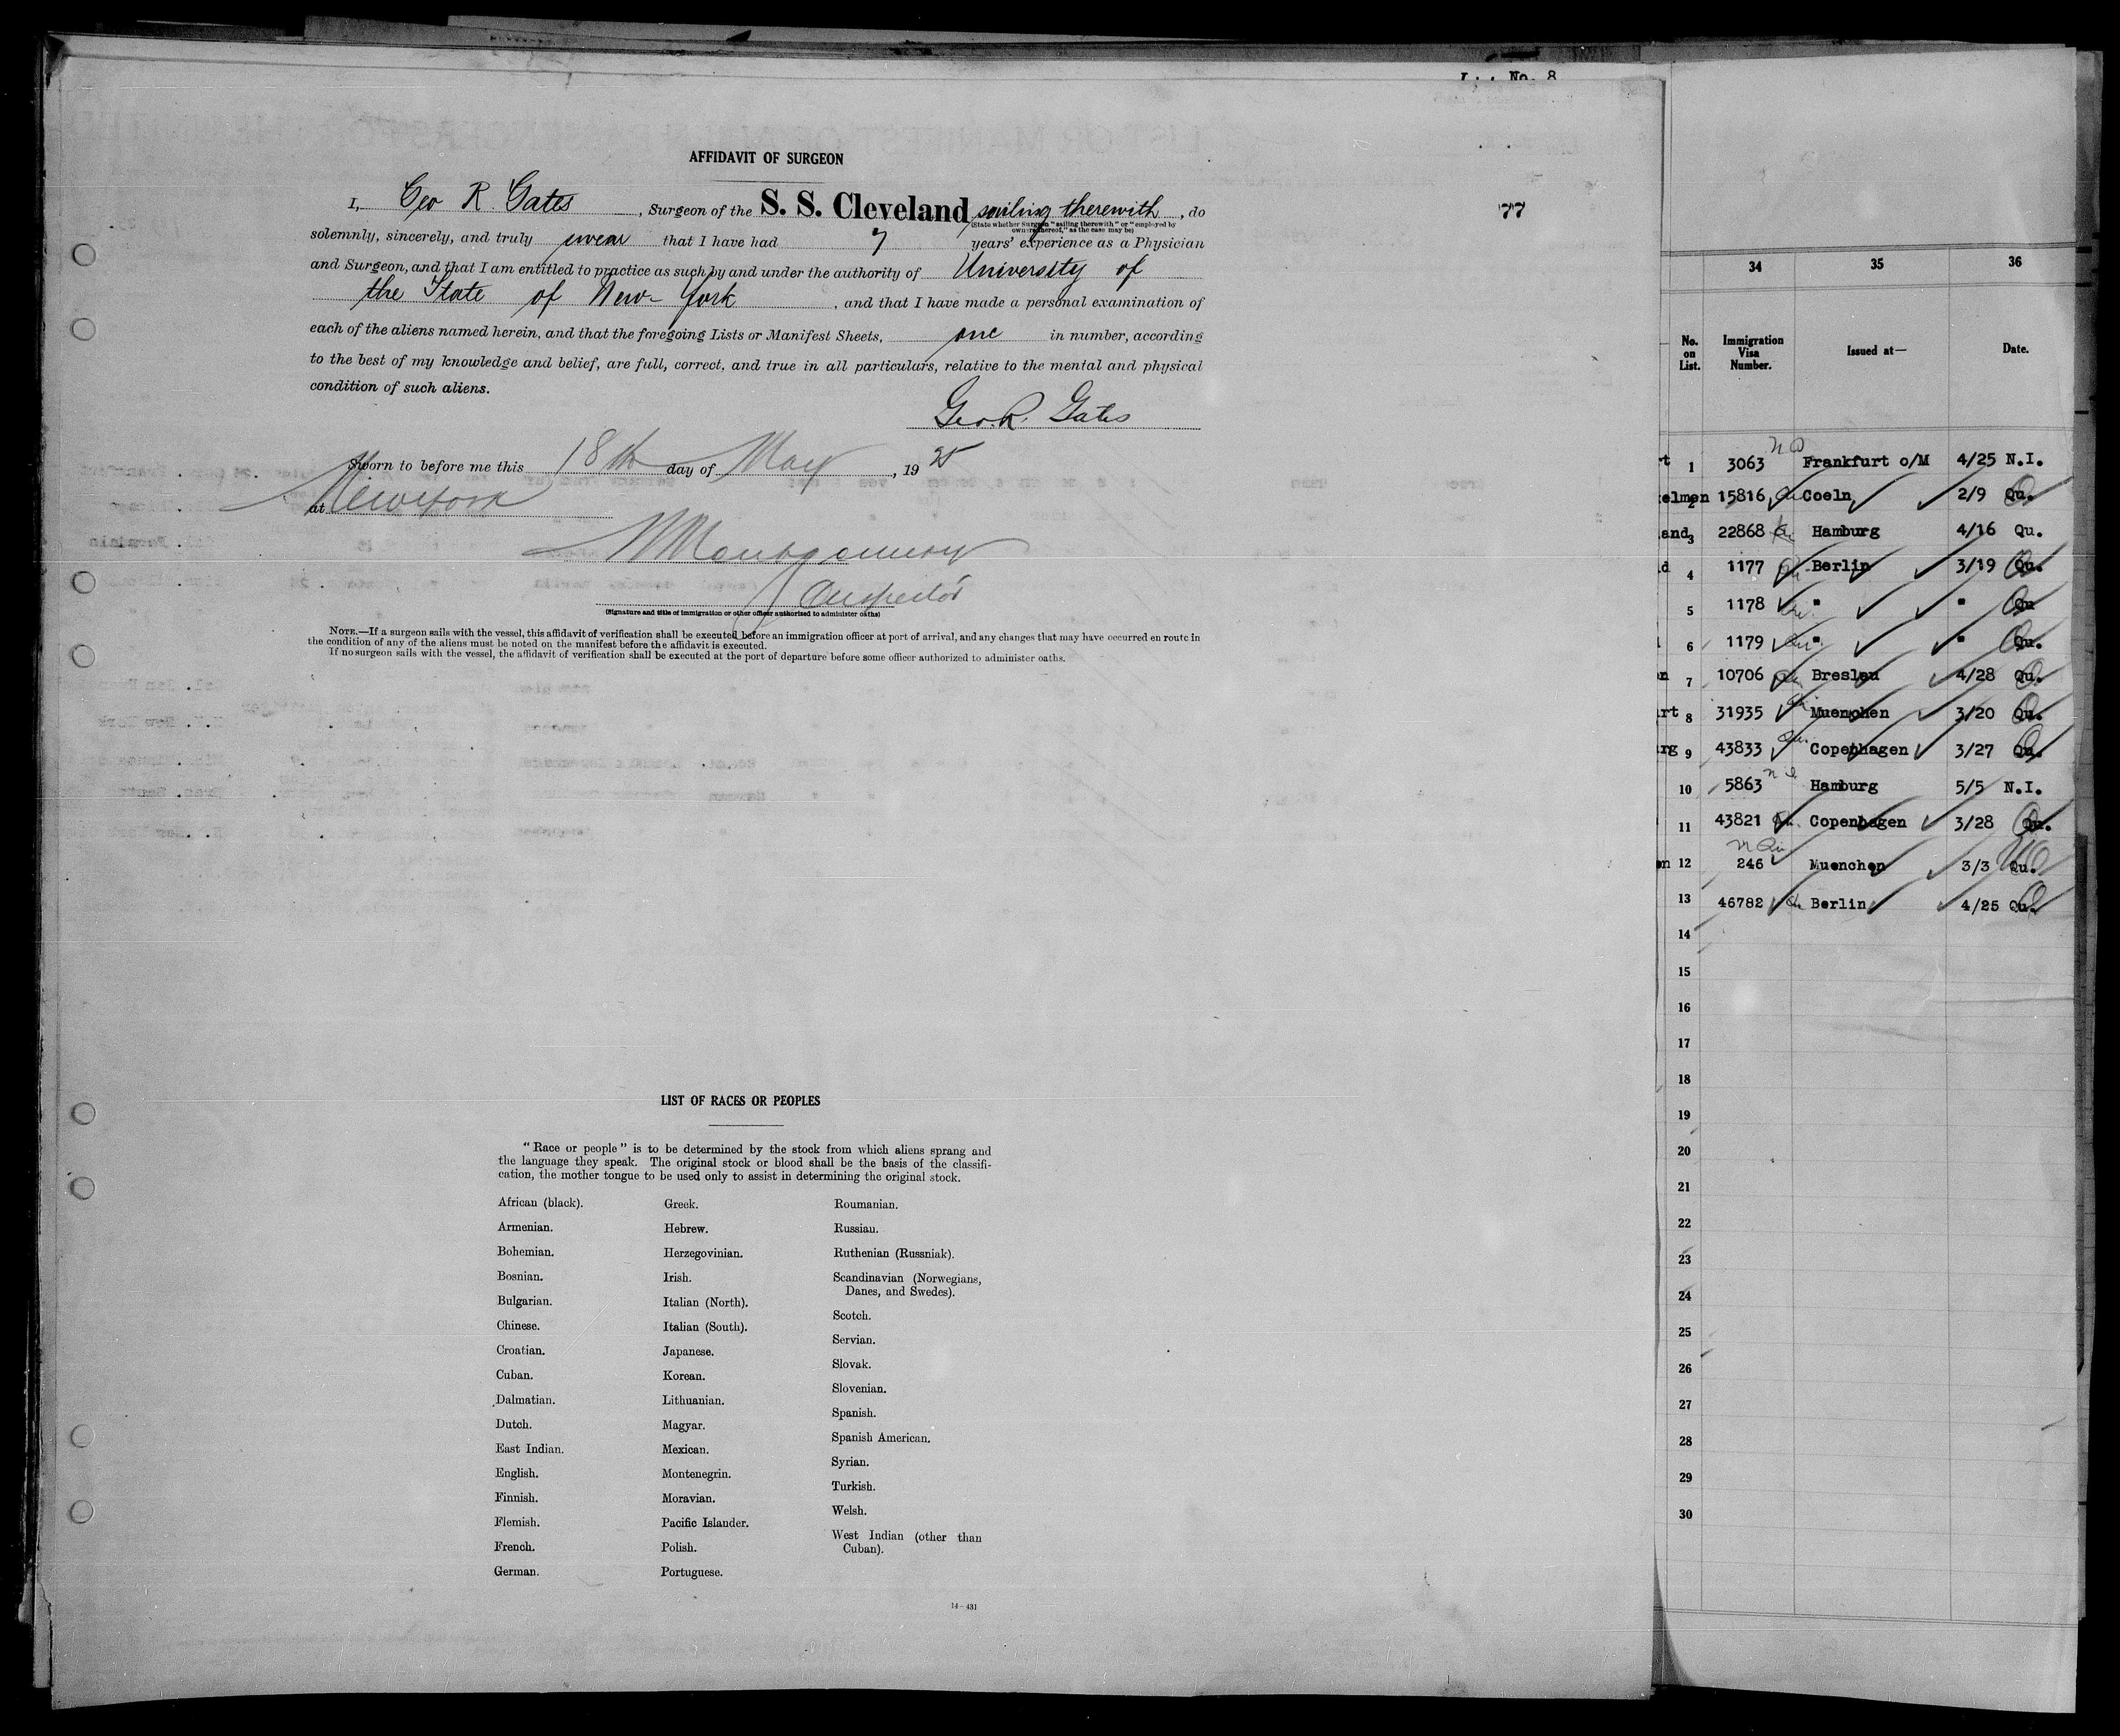 No. 8
AFFIDAVIT OF SURGEON
I, Geo R. Gates, Surgeon of the S. S. Cleveland sailing therewith, do
(State whether Surgeon "sailing therewith" or "employed by
owners thereof," as the case may be)
solemnly, sincerely, and truly swear that I have had 7 years' experience as a Physician
and Surgeon, and that I am entitled to practice as such by and under the authority of University of
the State of New-York, and that I have made a personal examination of
each of the aliens named herein, and that the foregoing Lists or Manifest Sheets, one in number, according
to the best of my knowledge and belief, are full, correct, and true in all particulars, relative to the mental and physical
condition of such aliens.
Geo. R. Gates
Sworn to before me this 18th day of May, 1925
at New York
Montgomery
Inspector
(Signature and title of immigration or other officer authorized to administer oaths)
NOTE.—If a surgeon sails with the vessel, this affidavit of verification shall be executed before an immigration officer at port of arrival, and any changes that may have occurred en route in
the condition of any of the aliens must be noted on the manifest before the affidavit is executed.
If no surgeon sails with the vessel, the affidavit of verification shall be executed at the port of departure before some officer authorized to administer oaths.
77
LIST OF RACES OR PEOPLES
"Race or people" is to be determined by the stock from which aliens sprang and
the language they speak. The original stock or blood shall be the basis of the classifi-
cation, the mother tongue to be used only to assist in determining the original stock.
African (black).
Armenian.
Bohemian.
Bosnian.
Bulgarian.
Chinese.
Croatian.
Cuban.
Dalmatian.
Dutch.
East Indian.
English.
Finnish.
Flemish.
French.
German.
Greek.
Hebrew.
Herzegovinian.
Irish.
Italian (North).
Italian (South).
Japanese.
Korean.
Lithuanian.
Magyar.
Mexican.
Montenegrin.
Moravian.
Pacific Islander.
Polish.
Portuguese.
Roumanian.
Russian.
Ruthenian (Russniak).
Scandinavian (Norwegians,
Danes, and Swedes).
Scotch.
Servian.
Slovak.
Slovenian.
Spanish.
Spanish American.
Syrian.
Turkish.
Welsh.
West Indian (other than
Cuban).
14—431
34 35 36
No. on List. Immigration Visa Number. Issued at— Date.
rt 1 3063 Frankfurt o/M 4/25 N.I.
elmen 2 15816 Qu Coeln 2/9 Qu.
and 3 22868 Hamburg 4/16 Qu.
d 4 1177 Qu Berlin 3/19 Qu.
5 1178 Qu " " Qu
6 1179 Qu. " " Qu.
n 7 10706 Qu Breslau 4/28 Qu.
rt 8 31935 Qu Muenchen 3/20 Qu.
rg 9 43833 Qu. Copenhagen 3/27 Qu.
10 5863 Hamburg 5/5 N.I.
11 43821 Qu. Copenhagen 3/28 Qu.
en 12 246 Muenchen 3/3 Qu.
13 46782 Qu Berlin 4/25 Qu.
14
15
16
17
18
19
20
21
22
23
24
25
26
27
28
29
30